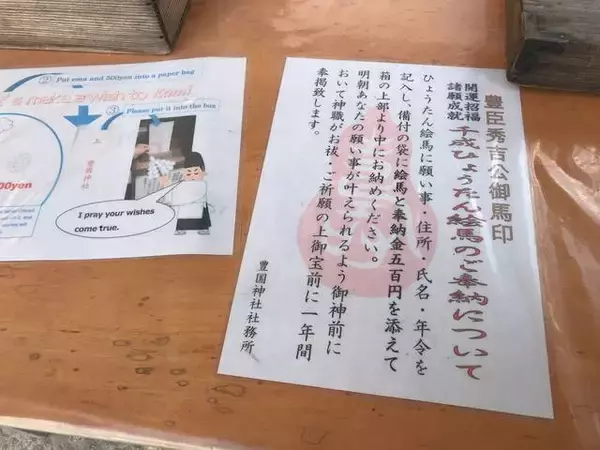 ② Put ema and 500yen into a paper bag
's make a wish to Kami
③ Please put it into the box
上
豊国神社
00yen
I pray your wishes
come true.
豊臣秀吉公御馬印
開運招福
諸願成就
千成ひょうたん絵馬のご奉納について
ひょうたん絵馬に願い事・住所・氏名・年令を
記入し、備付の袋に絵馬と奉納金五百円を添えて
箱の上部より中にお納めください。
明朝あなたの願い事が叶えられるよう御神前に
おいて神職がお祓・ご祈願の上御宝前に一年間
奉掲致します。
豊国神社社務所